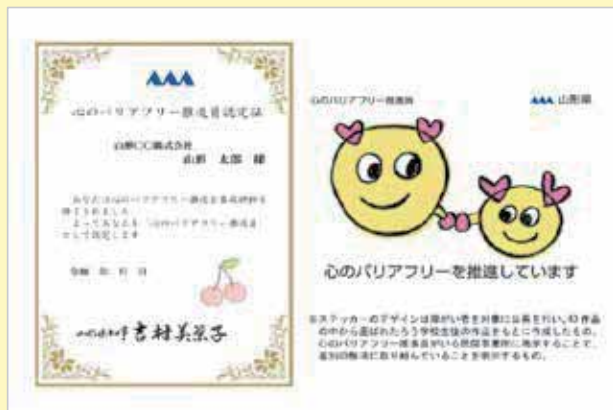 心のバリアフリー推進員認定証
山形〇〇株式会社
山形 太郎 様
あなたは心のバリアフリー推進員養成研修を
修了されました
よってあなたを「心のバリアフリー推進員」
として認定します
令和 年 月 日
山形県知事 吉村美栄子
心のバリアフリー推進員
山形県
心のバリアフリーを推進しています
※ステッカーのデザインは障がい者を対象に公募を行い、63作品
の中から選ばれたろう学校生徒の作品をもとに作成したもの。
心のバリアフリー推進員がいる民間事業所に掲示することで、
差別の解消に取り組んでいることを明示するもの。